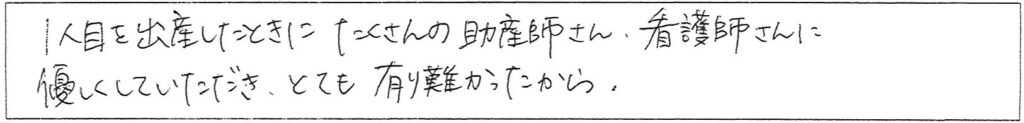 1人目を出産したときに たくさんの助産師さん、看護師さんに
優しくしていただき、とても 有り難かったから。